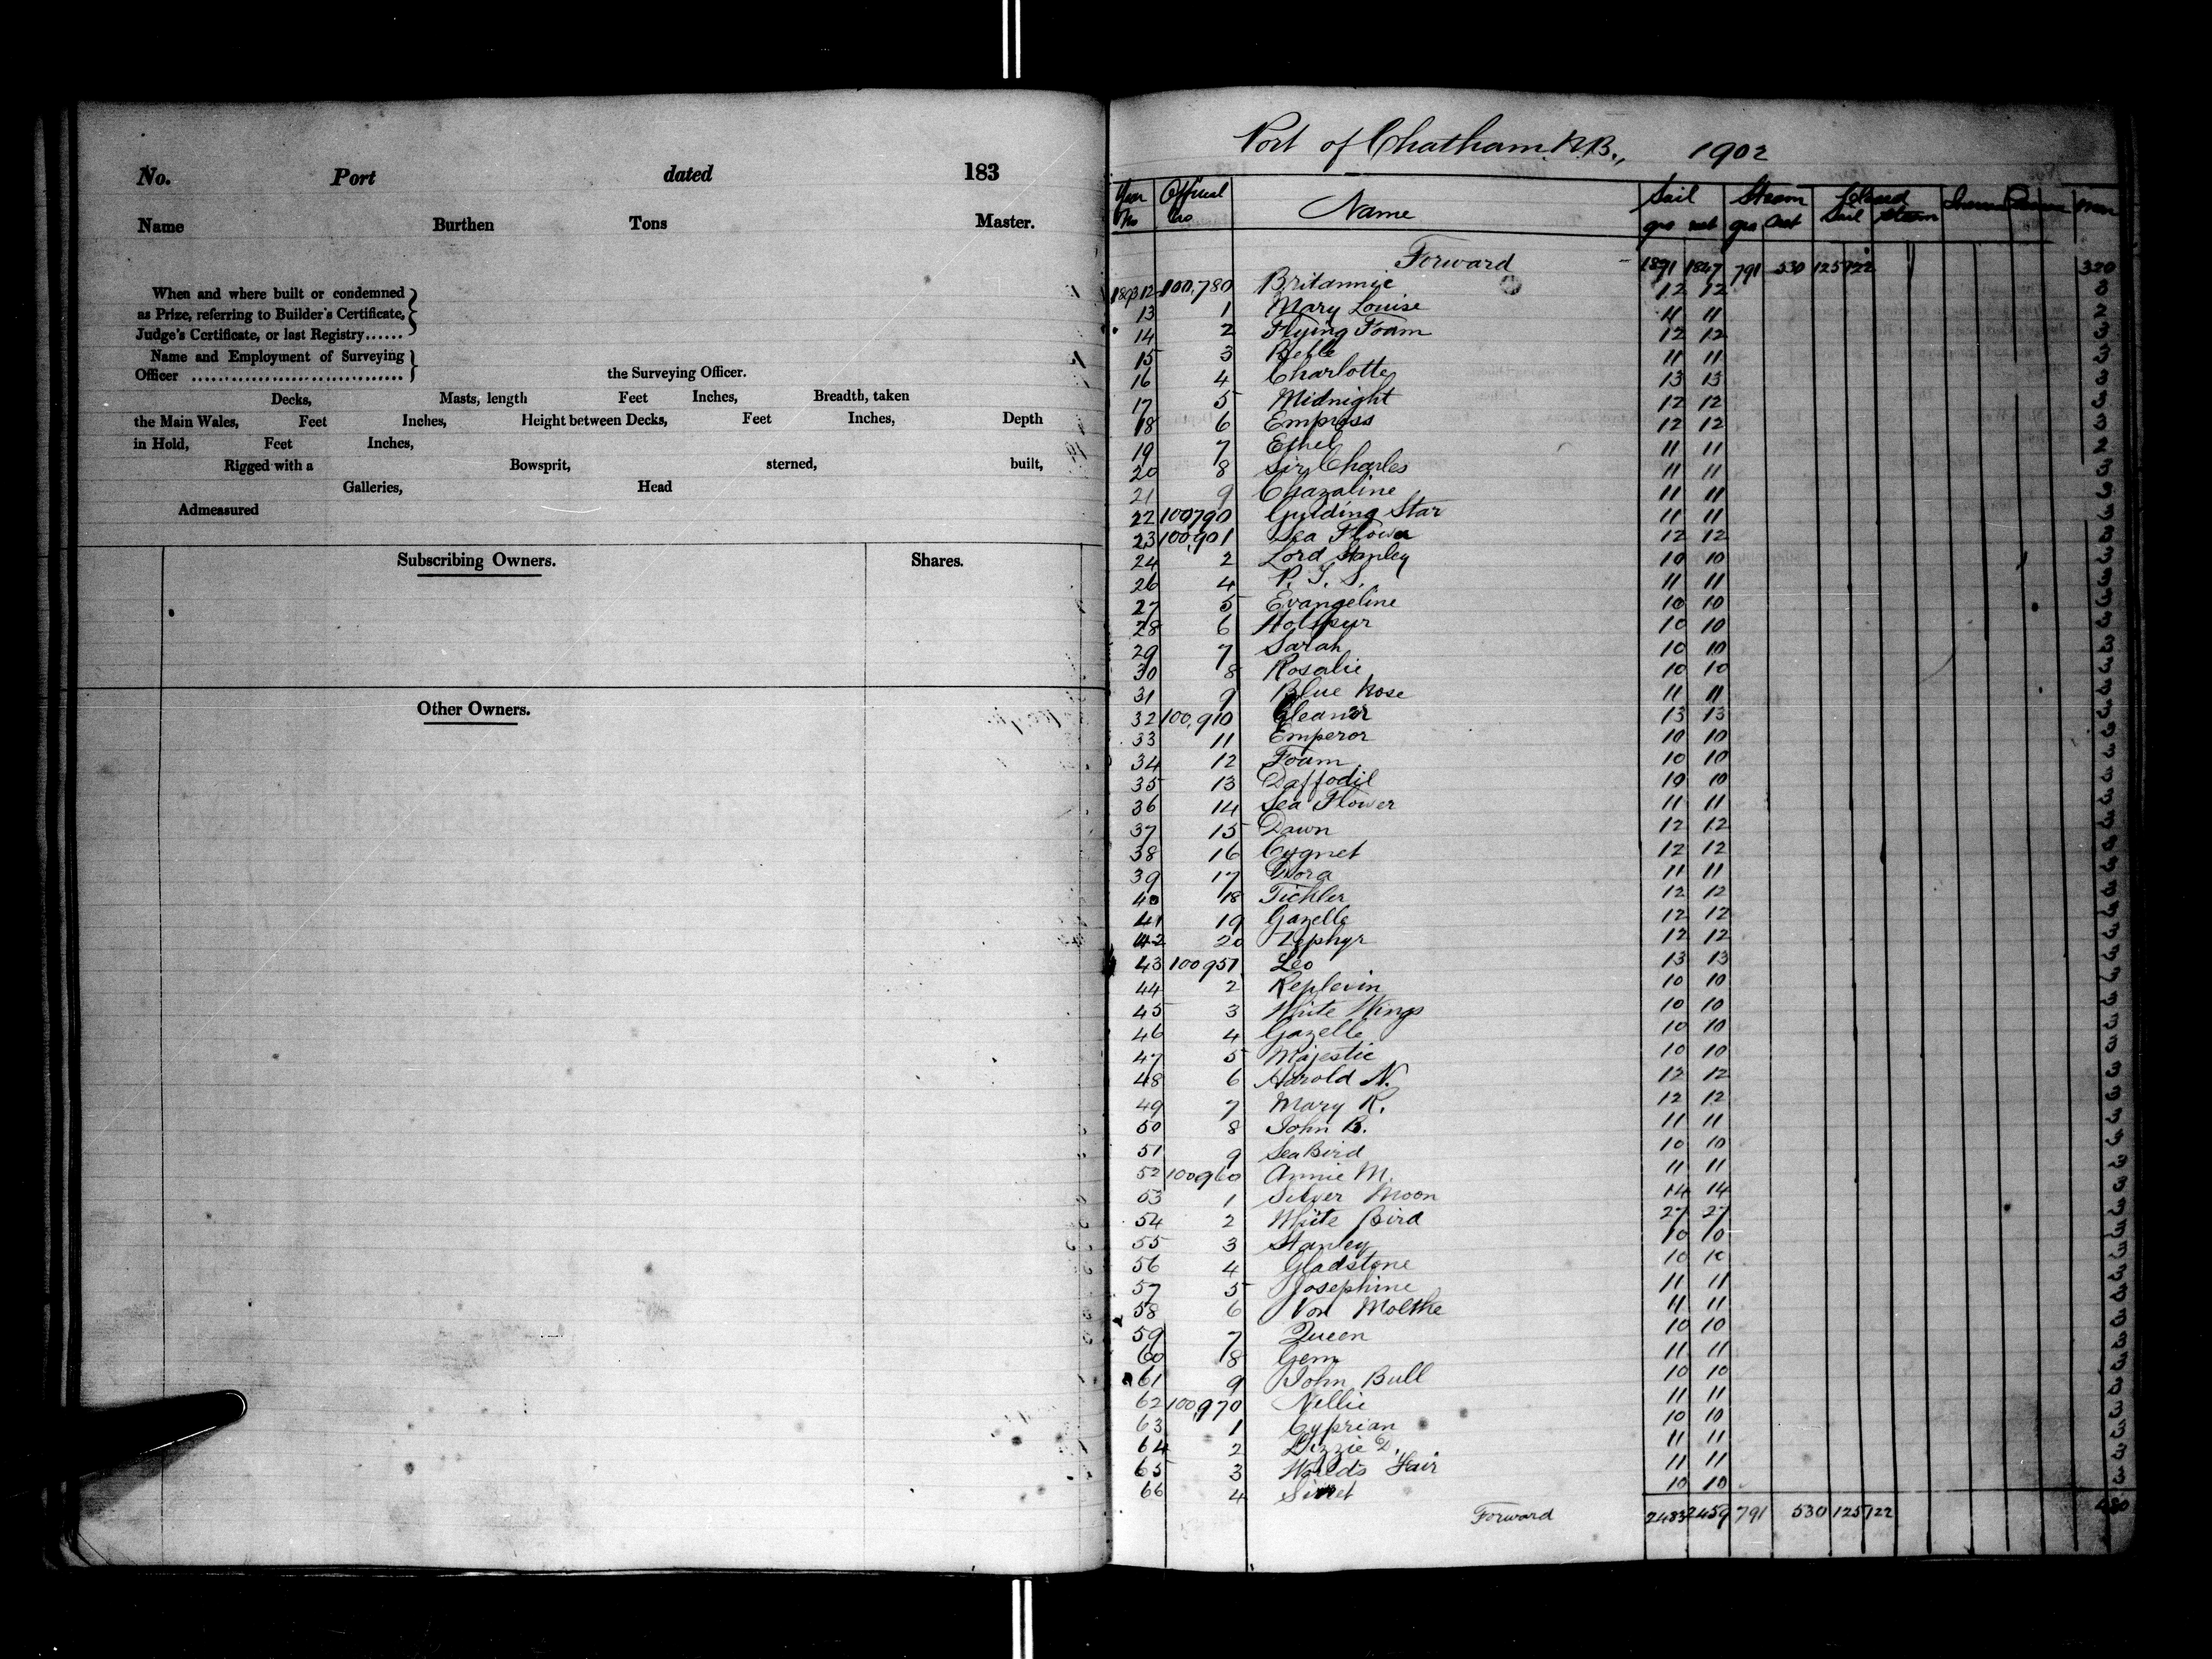 No. Port dated 183
Name Burthen Tons Master.
When and where built or condemned
as Prize, referring to Builder's Certificate,
Judge's Certificate, or last Registry......
Name and Employment of Surveying
Officer ................................ the Surveying Officer.
Decks, Masts, length Feet Inches, Breadth, taken
the Main Wales, Feet Inches, Height between Decks, Feet Inches, Depth
in Hold, Feet Inches,
Rigged with a Bowsprit, sterned, built,
Galleries, Head
Admeasured
Subscribing Owners. Shares.
Other Owners.
Port of Chatham N.B., 1902
Year Official Name Sail Steam Sail Steam Men
No No gro net gro net
Forward 1891 1847 791 530 125722 320
1893 12 100,780 Britannie 12 12 3
13 1 Mary Louise 11 11 3
14 2 Flying Foam 12 12 2
15 3 Belle 11 11 3
16 4 Charlotte 13 13 3
17 5 Midnight 12 12 3
18 6 Empress 12 12 3
19 7 Ethel 11 11 2
20 8 Sir Charles 11 11 3
21 9 Chazaline 11 11 3
22 100790 Guiding Star 11 11 3
23 100,901 Sea Flower 12 12 3
24 2 Lord Stanley 10 10 3
26 4 P. J. S. 11 11 3
27 5 Evangeline 10 10 3
28 6 Hotspur 10 10 3
29 7 Sarah 10 10 3
30 8 Rosalie 10 10 3
31 9 Blue Nose 11 11 3
32 100,910 Eleanor 13 13 3
33 11 Emperor 10 10 3
34 12 Foam 10 10 3
35 13 Daffodil 10 10 3
36 14 Sea Flower 11 11 3
37 15 Dawn 12 12 3
38 16 Cygnet 12 12 3
39 17 Dora 11 11 3
40 18 Tickler 12 12 3
41 19 Gazelle 12 12 3
42 20 Zephyr 12 12 3
43 100951 Leo 13 13 3
44 2 Replevin 10 10 3
45 3 White Wings 10 10 3
46 4 Gazelle 10 10 3
47 5 Majestic 10 10 3
48 6 Harold N. 12 12 3
49 7 Mary R. 12 12 3
50 8 John B. 11 11 3
51 9 Sea Bird 10 10 3
52 100960 Annie M. 11 11 3
53 1 Silver Moon 14 14 3
54 2 White Bird 27 27 3
55 3 Stanley 10 10 3
56 4 Gladstone 10 10 3
57 5 Josephine 11 11 3
58 6 Von Molthe 11 11 3
59 7 Queen 10 10 3
60 8 Gem 11 11 3
61 9 John Bull 10 10 3
62 100,970 Nellie 11 11 3
63 1 Cyprian 10 10 3
64 2 Lizzie D. 11 11 3
65 3 Worlds Fair 11 11 3
66 4 10 10 3
Forward 2483 2459 791 530 125722 480